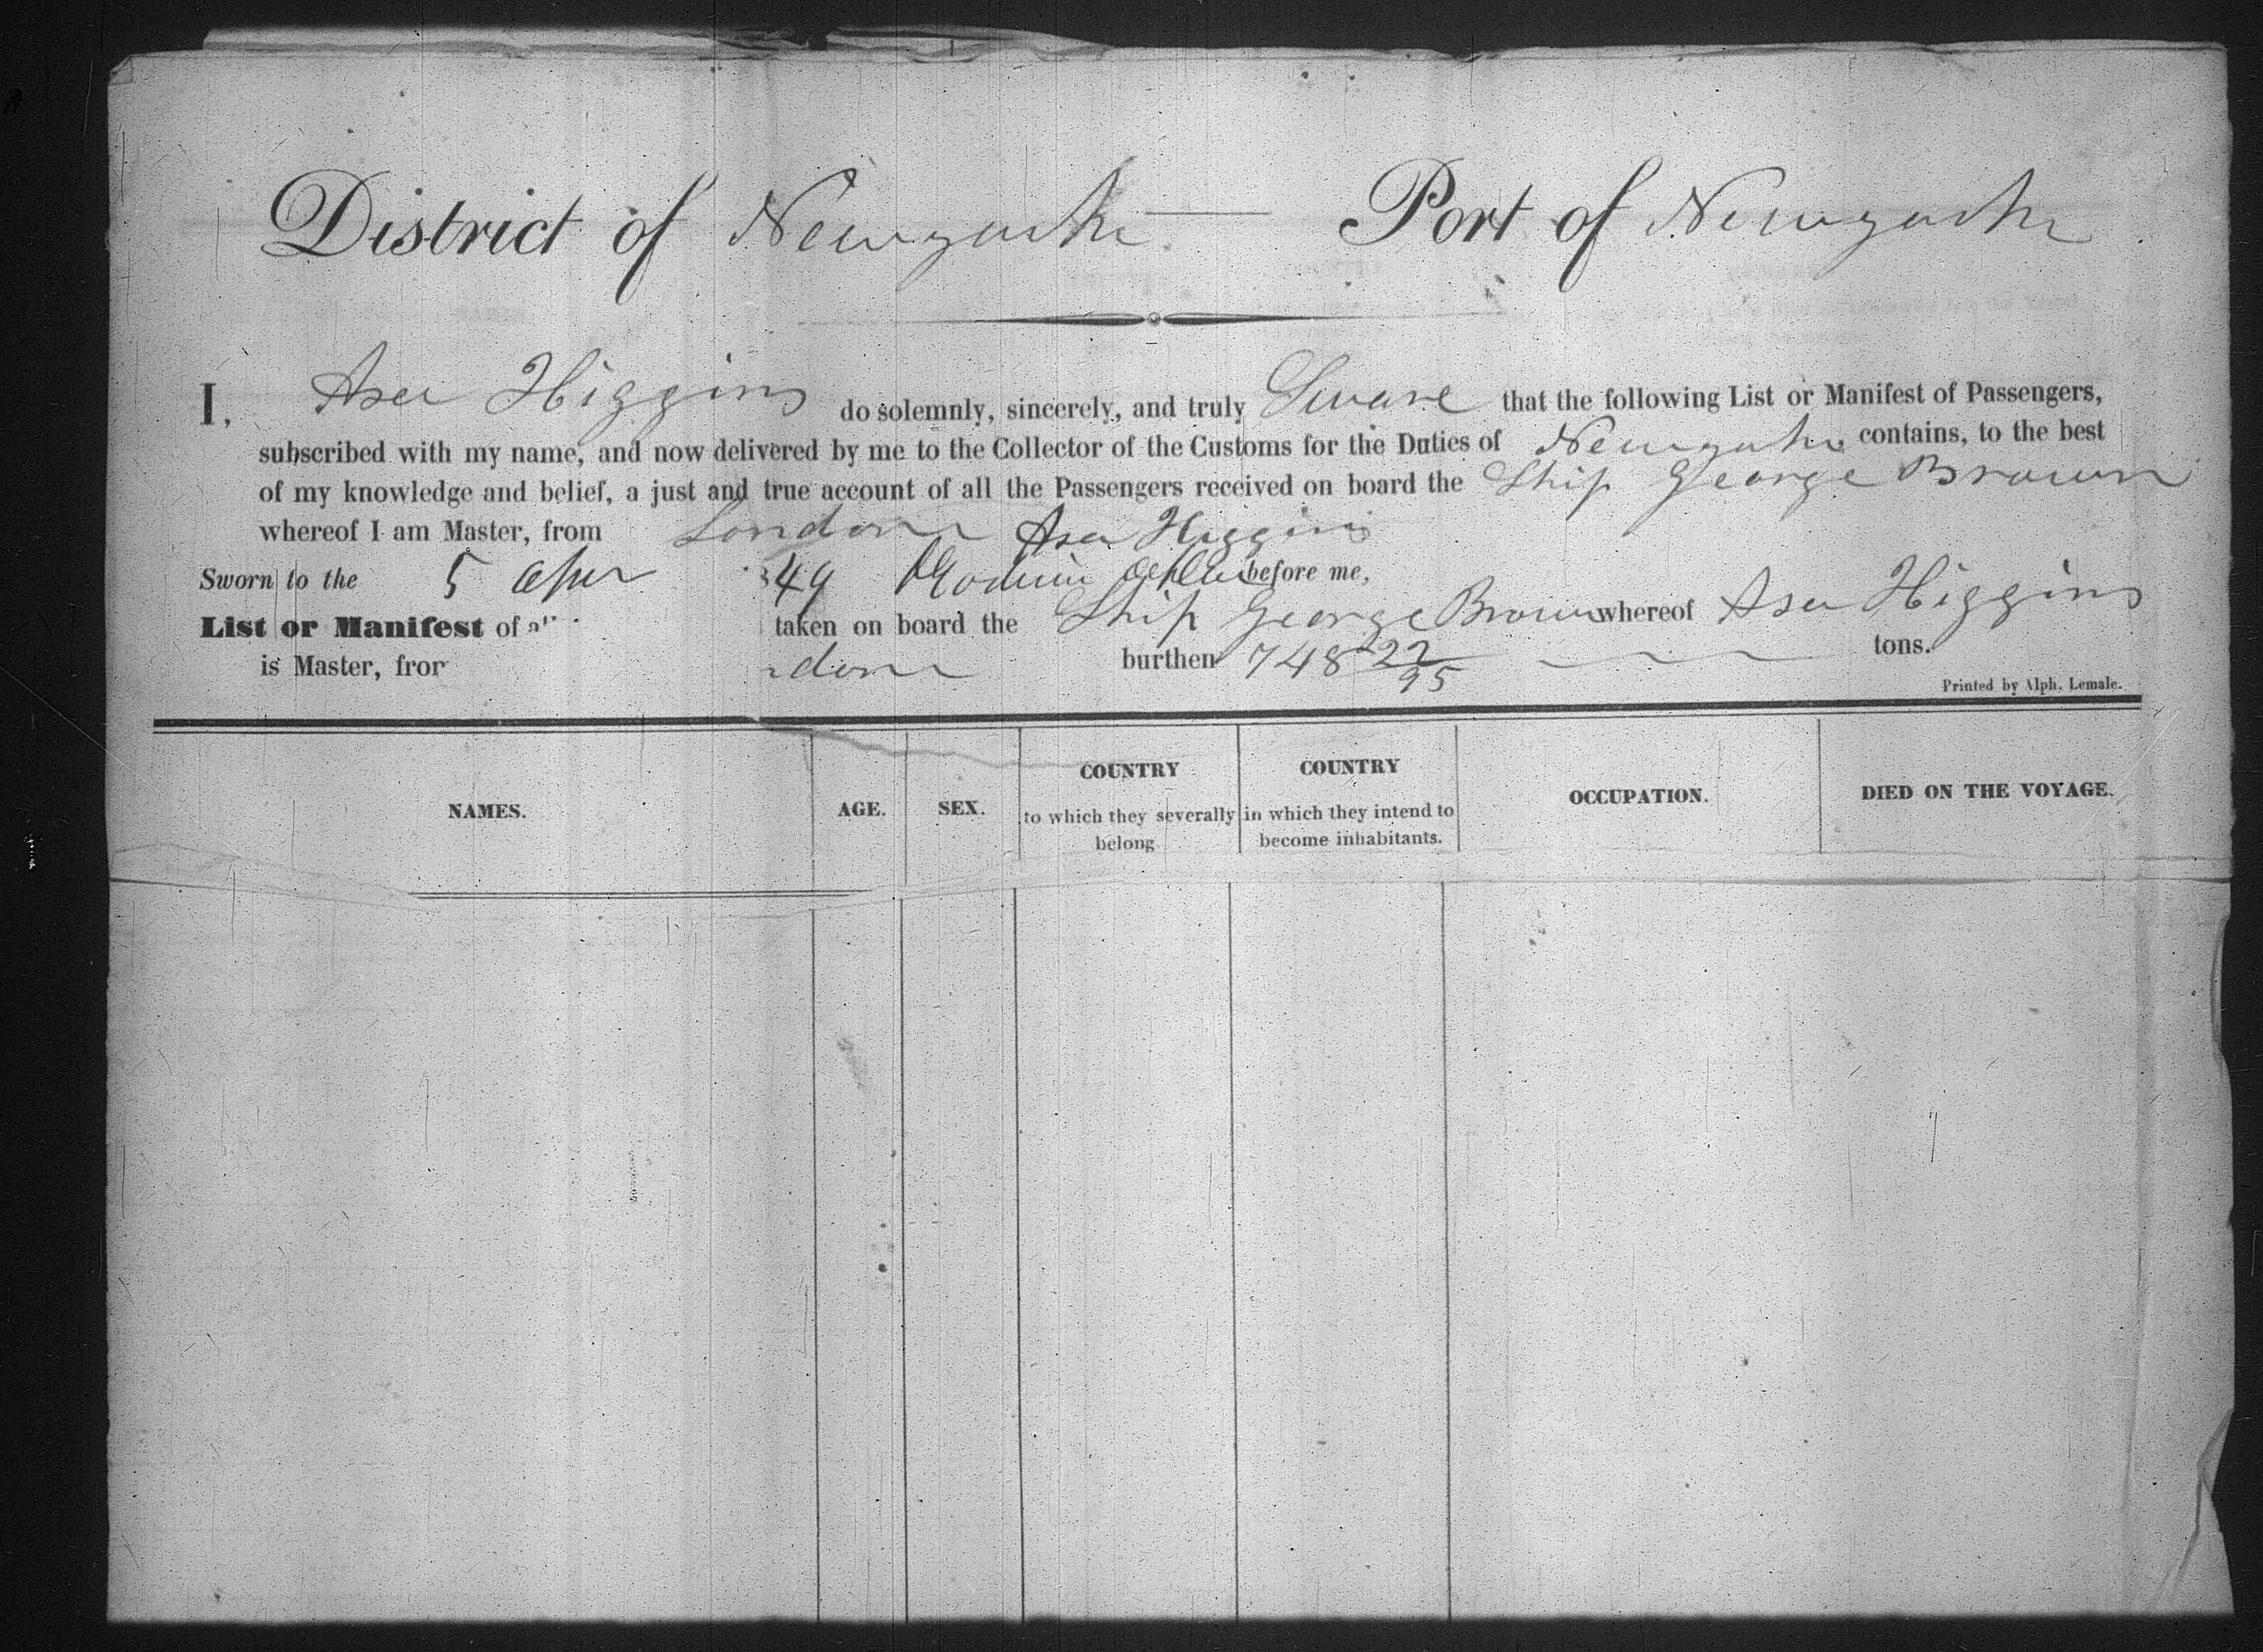 District of Newyork Port of Newyork
I, Asa Higgins do solemnly, sincerely, and truly Sware that the following List or Manifest of Passengers,
subscribed with my name, and now delivered by me to the Collector of the Customs for the Duties of Newyork contains, to the best
of my knowledge and belief, a just and true account of all the Passengers received on board the Ship George Brown
whereof I am Master, from London Asa Higgins
Sworn to the 5 Apr 49 before me,
List or Manifest of taken on board the Ship George Brown whereof Asa Higgins
is Master, burthen 748 22/95 tons.
Printed by Alph. Lemale.
NAMES. AGE. SEX. COUNTRY to which they severally belong COUNTRY in which they intend to become inhabitants. OCCUPATION. DIED ON THE VOYAGE.